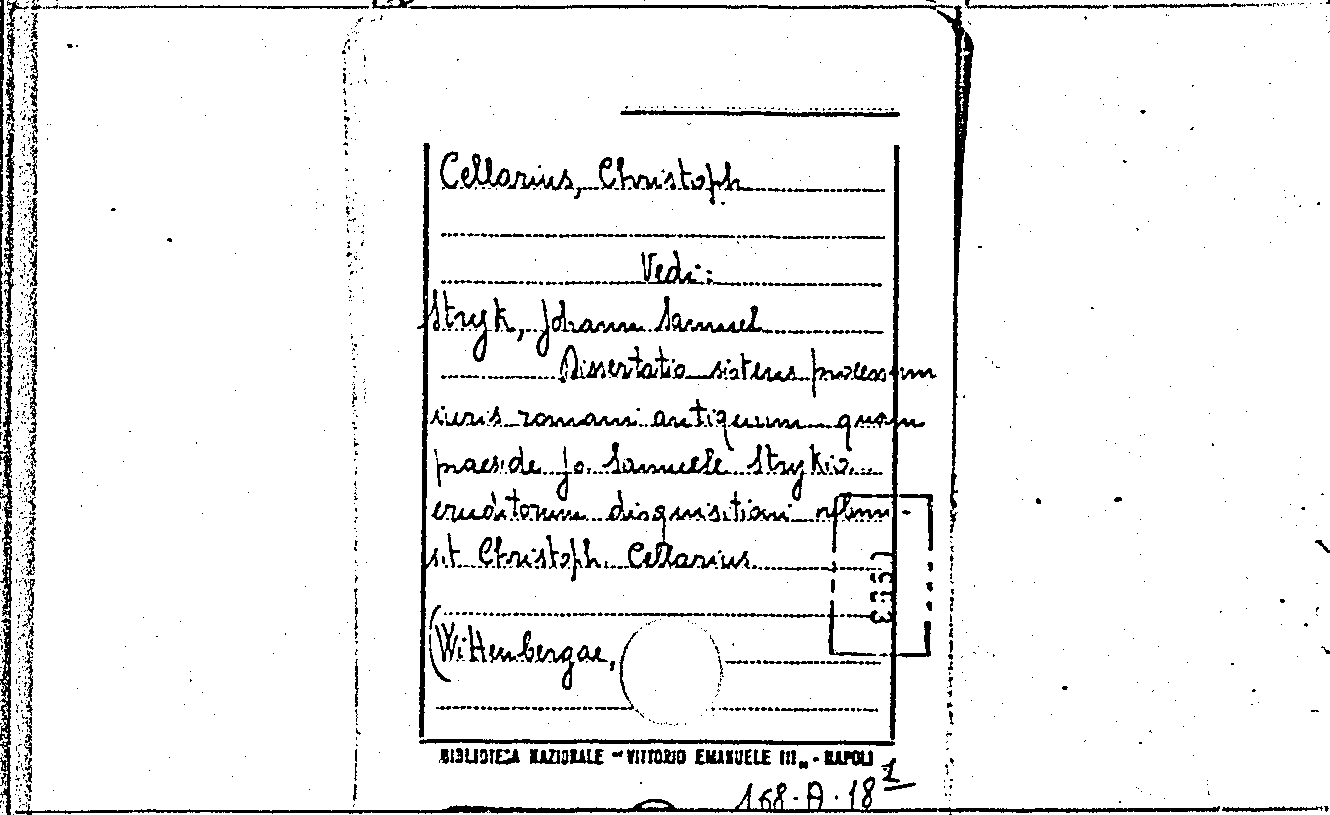 Cellarius, Christoph
Vedi:
Stryk, Johann Samuel
Dissertatio sistens processum
iuris romani antiquum quam
praeside Jo. Samuele Strykio
eruditorum disquisitioni
sit Christoph. Cellarius
(Wittenbergae,
BIBLIOTECA NAZIONALE "VITTORIO EMANUELE III" - NAPOLI
168.A.18 1